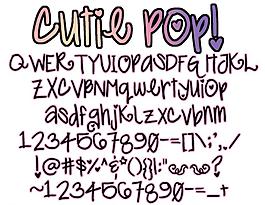 Cutie Pop!
QWERTYUIOPASDFGHJKL
ZXCVBNMqwertyuiop
asdfghjklzxcvbnm
1234567890-=[]\;',./
!@#$%^&*(){}|:"~~?
~1234567890-=_+